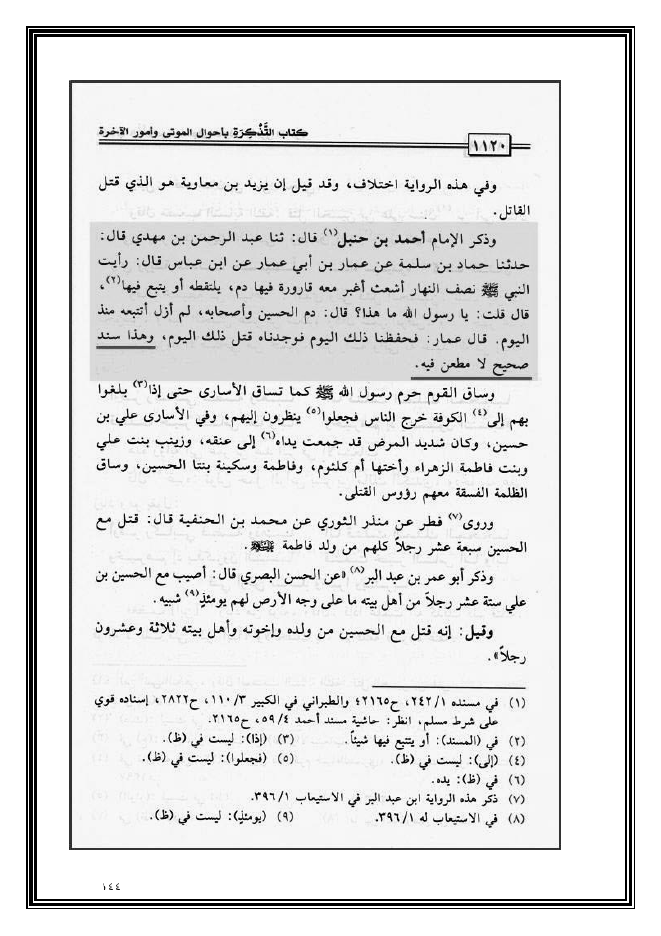 كتاب التَّذْكِرَةِ بأحوال الموتى وأمور الآخرة
١١٢٠
وفي هذه الرواية اختلاف، وقد قيل إن يزيد بن معاوية هو الذي قتل
القاتل.
وذكر الإمام أحمد بن حنبل(١) قال: ثنا عبد الرحمن بن مهدي قال:
حدثنا حماد بن سلمة عن عمار بن أبي عمار عن ابن عباس قال: رأيت
النبي ﷺ نصف النهار أشعث أغبر معه قارورة فيها دم، يلتقطه أو يتبع فيها(٢)،
قال قلت: يا رسول الله ما هذا؟ قال: دم الحسين وأصحابه، لم أزل أتتبعه منذ
اليوم. قال عمار: فحفظنا ذلك اليوم فوجدناه قتل ذلك اليوم، وهذا سند
صحيح لا مطعن فيه.
وساق القوم حرم رسول الله ﷺ كما تساق الأسارى حتى إذا(٣) بلغوا
بهم إلى(٤) الكوفة خرج الناس فجعلوا(٥) ينظرون إليهم، وفي الأسارى علي بن
حسين، وكان شديد المرض قد جمعت يداه(٦) إلى عنقه، وزينب بنت علي
وبنت فاطمة الزهراء وأختها أم كلثوم، وفاطمة وسكينة بنتا الحسين، وساق
الظلمة الفسقة معهم رؤوس القتلى.
وروى(٧) فطر عن منذر الثوري عن محمد بن الحنفية قال: قتل مع
الحسين سبعة عشر رجلاً كلهم من ولد فاطمة.
وذكر أبو عمر بن عبد البر(٨) «عن الحسن البصري قال: أصيب مع الحسين بن
علي ستة عشر رجلاً من أهل بيته ما على وجه الأرض لهم يومئذٍ(٩) شبيه.
وقيل: إنه قتل مع الحسين من ولده وإخوته وأهل بيته ثلاثة وعشرون
رجلاً».
(١) في مسنده ٢٤٢/١، ح٢١٦٥؛ والطبراني في الكبير ١١٠/٣، ح٢٨٢٢، إسناده قوي
على شرط مسلم، انظر: حاشية مسند أحمد ٥٩/٤، ح٢١٦٥.
(٢) في (المسند): أو يتتبع فيها شيئاً. (٣) (إذا): ليست في (ظ).
(٤) (إلى): ليست في (ظ). (٥) (فجعلوا): ليست في (ظ).
(٦) في (ظ): يده.
(٧) ذكر هذه الرواية ابن عبد البر في الاستيعاب ٣٩٦/١.
(٨) في الاستيعاب له ٣٩٦/١. (٩) (يومئذٍ): ليست في (ظ).
١٤٤